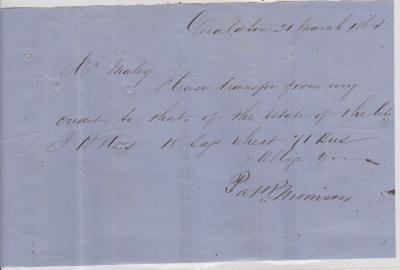 21 March
Mr Maley
Please transfer from my
credit to that of the estate of the late
J H Ross 18 Bags wheat 71 Bus
& Oblige Yrs
Morrison